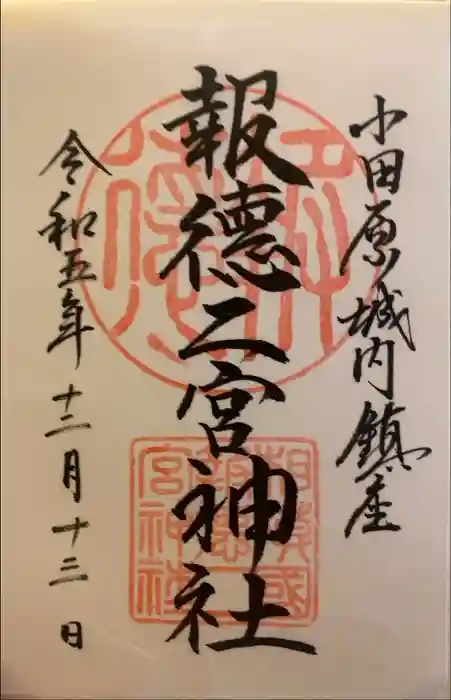 小田原城内鎮座
報徳二宮神社
令和五年十二月十三日
相模國
報徳二
宮神社
報徳